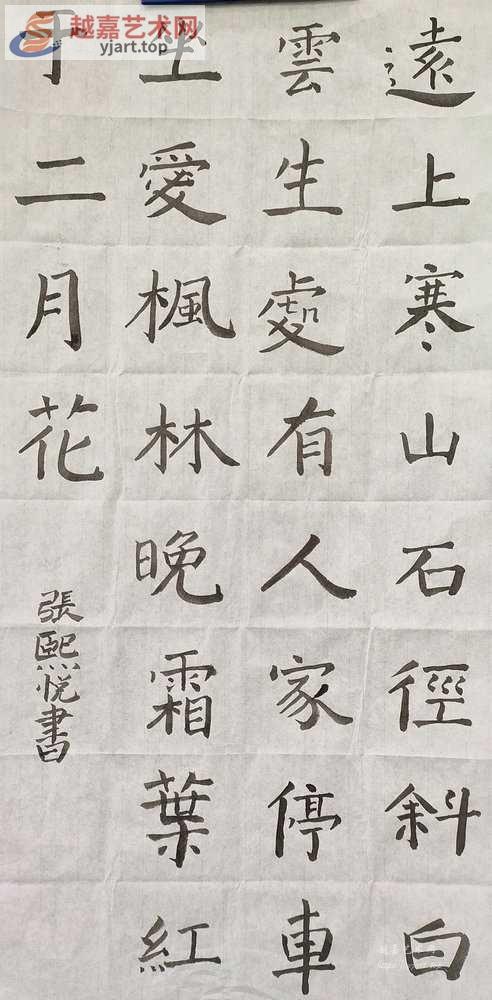 越嘉艺术网
yjart.top
遠上寒山石徑斜白
雲生處有人家停車
坐愛楓林晚霜葉紅
于二月花
張熙悦書